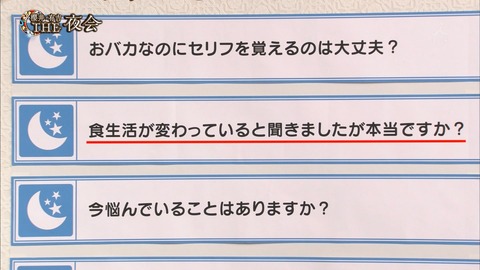 櫻井・有吉
THE 夜会
おバカなのにセリフを覚えるのは大丈夫？
食生活が変わっていると聞きましたが本当ですか？
今悩んでいることはありますか？